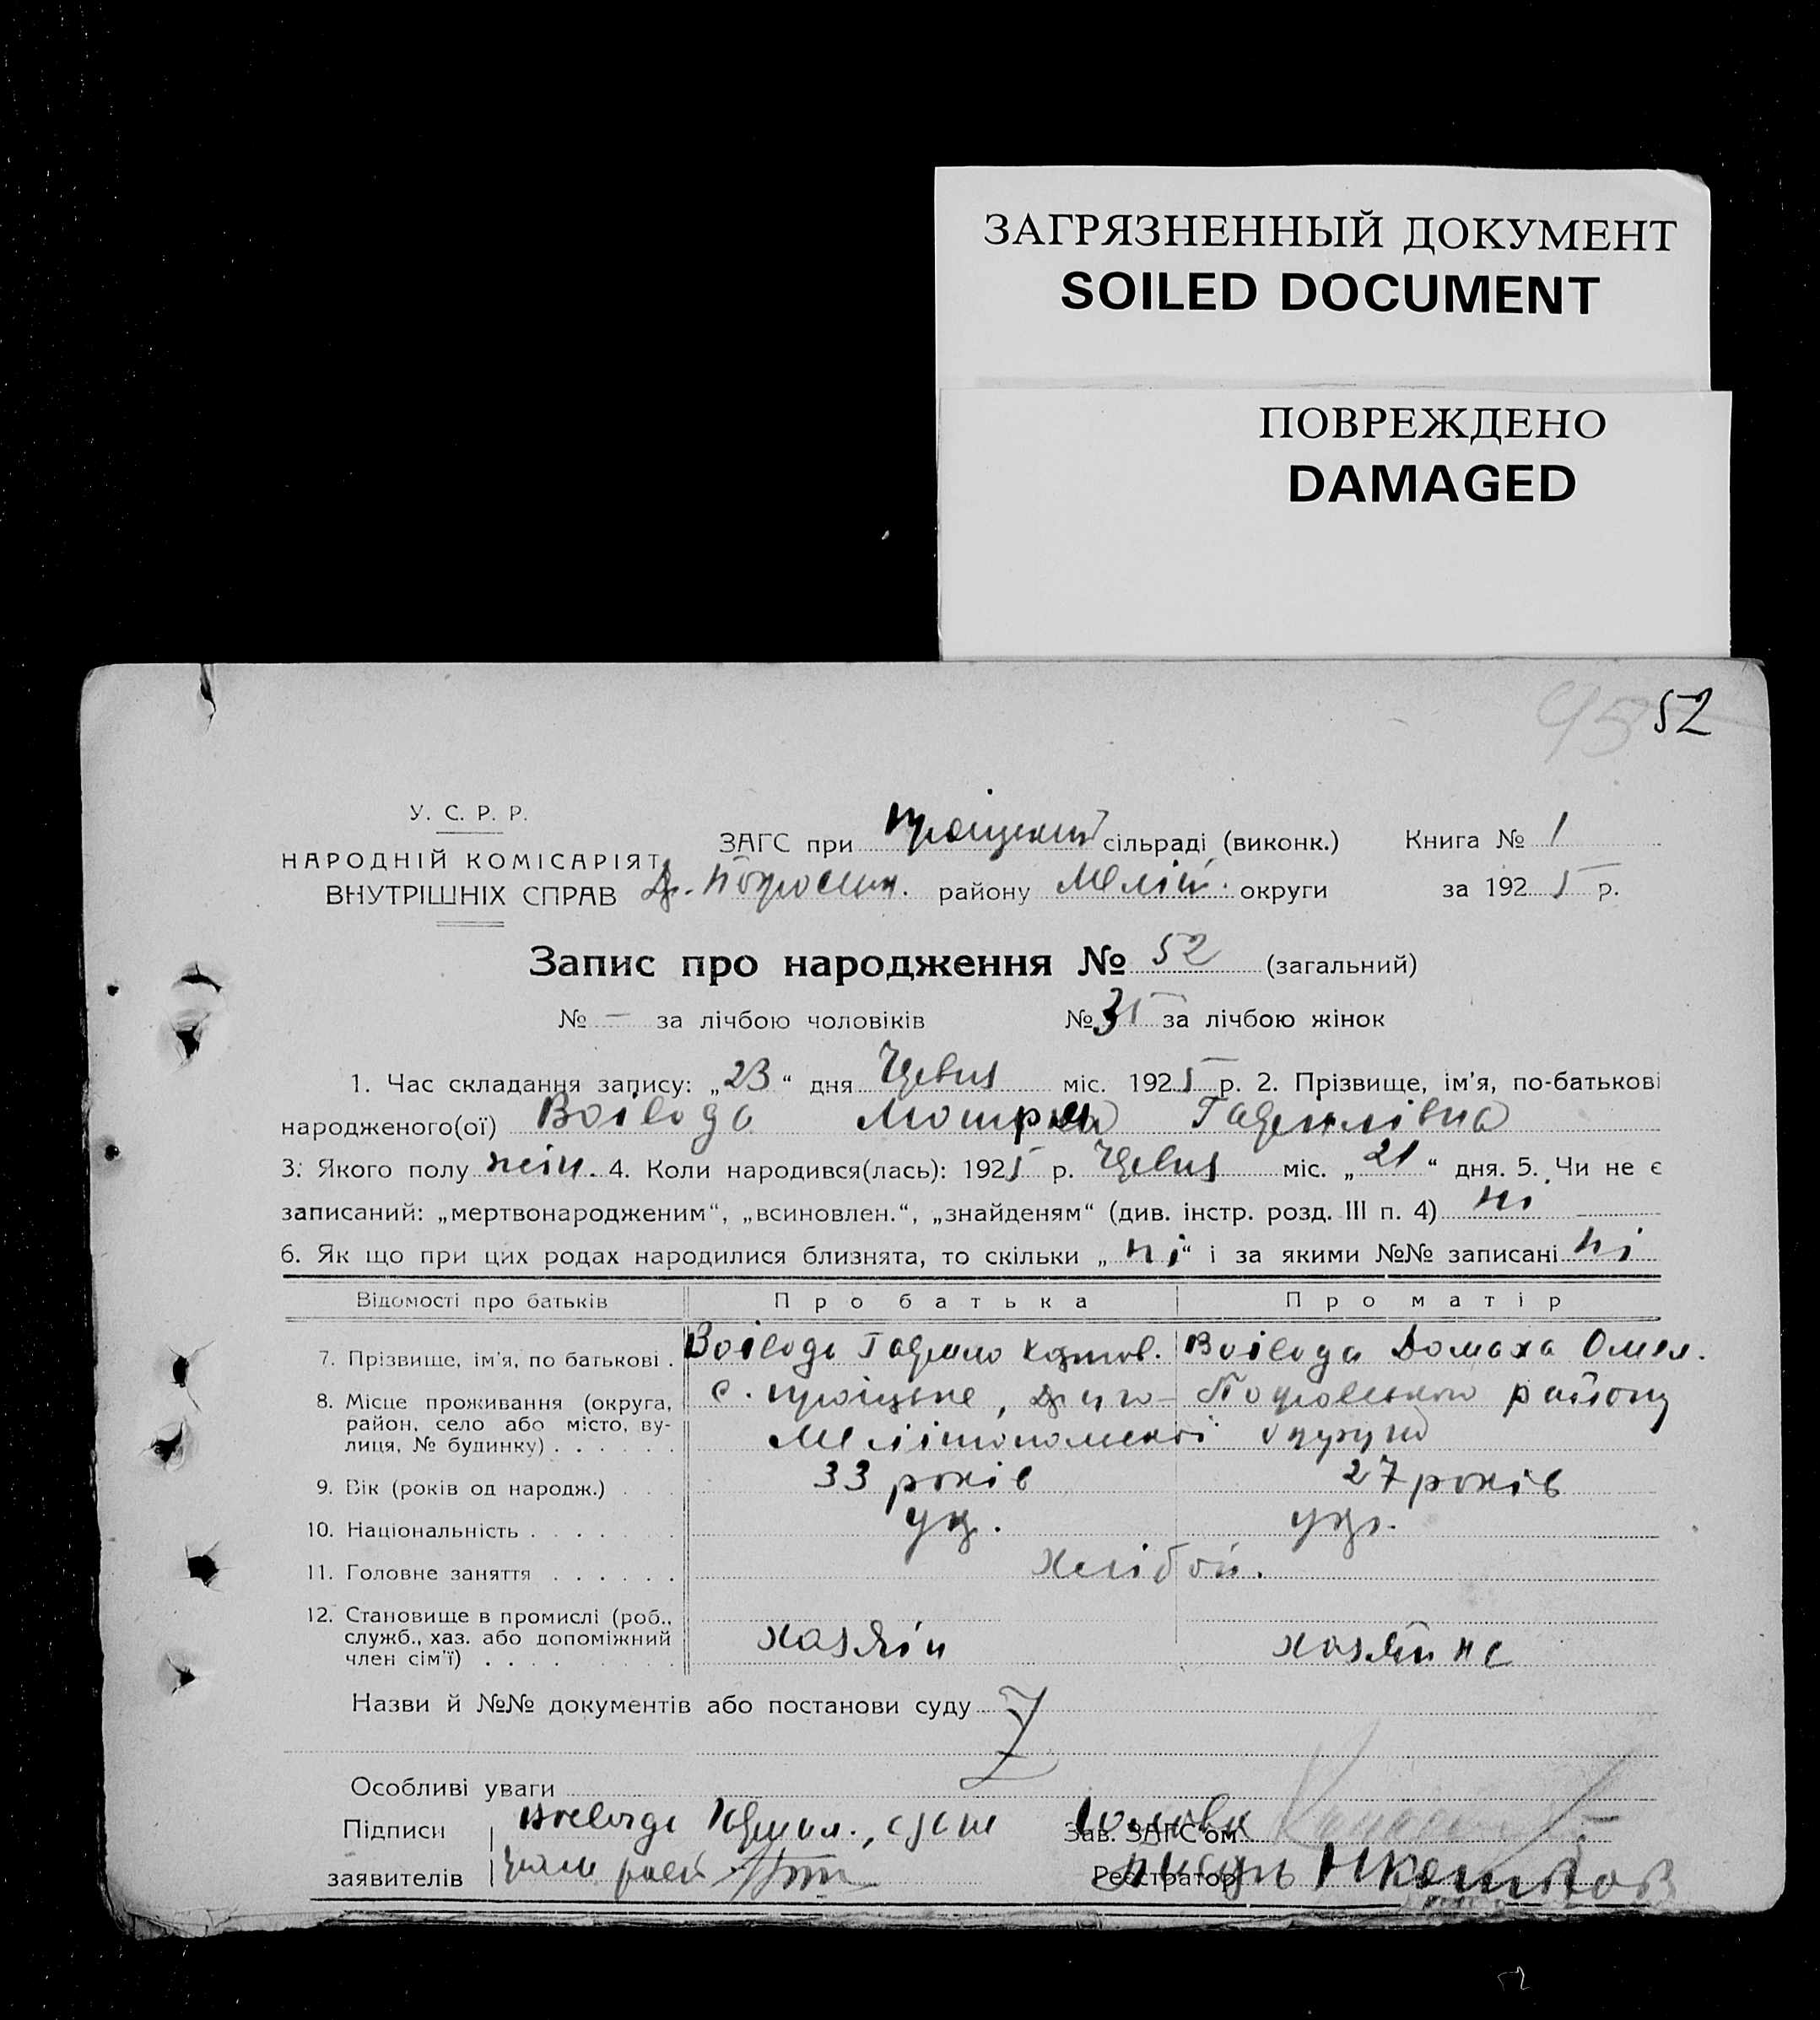 ЗАГРЯЗНЕННЫЙ ДОКУМЕНТ
SOILED DOCUMENT
ПОВРЕЖДЕНО
DAMAGED
52
У. С. Р. Р.
НАРОДНІЙ КОМІСАРІЯТ
ВНУТРІШНІХ СПРАВ
ЗАГС при сільраді (виконк.) Книга № 1
району Меліт. округи за 1925 р.
Запис про народження № 52 (загальний)
№ — за лічбою чоловіків № 35 за лічбою жінок
1. Час складання запису: „23“ дня міс. 1925 р. 2. Прізвище, ім'я, по-батькові
народженого(ої) Воівода Мотря Гаврилівна
3. Якого полу жін. 4. Коли народився(лась): 1925 р. міс. „21“ дня. 5. Чи не є
записаний: „мертвонародженим“, „всиновлен.“, „знайденям“ (див. інстр. розд. III п. 4) ні
6. Як що при цих родах народилися близнята, то скільки „ні“ і за якими №№ записані ні
Відомості про батьків Про батька Про матір
7. Прізвище, ім'я, по батькові . Воівода Гаврило Воівода Домаха Омел.
8. Місце проживання (округа, район, село або місто, вулиця, № будинку) . . . . . . с. Троіцьке, Покровського району
Мелітопольскоі округи
9. Вік (років од народж.) . . . 33 років 27 років
10. Національність . . . . . . . укр. укр.
11. Головне заняття . . . . . . хлібор.
12. Становище в промислі (роб., служб., хаз. або допоміжний член сім'ї) . . . . хазяін хазяйка
Назви й №№ документів або постанови суду
Особливі уваги
Підписи Голова
Зав. ЗАГС'ом
заявителів
Реєстратор
52